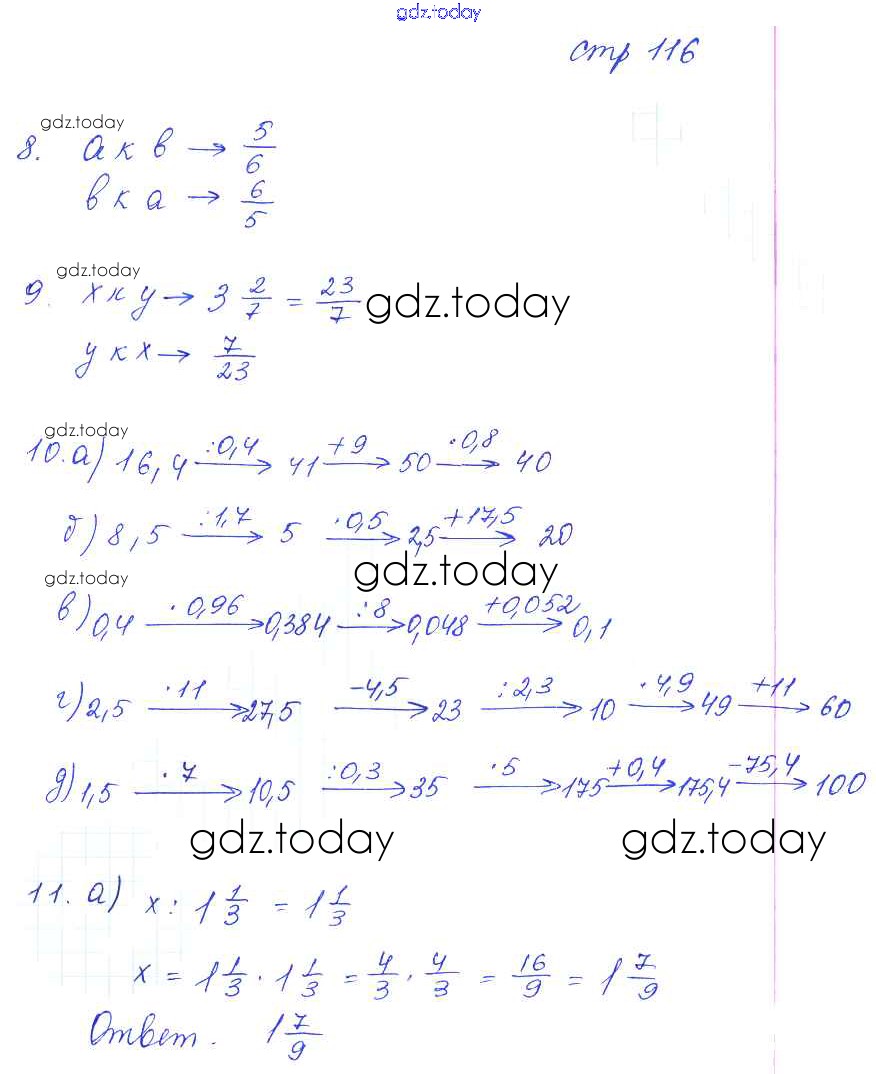 gdz.today
стр 116
gdz.today
8. a к в → 5/6
в к а → 6/5
gdz.today
9. х к у → 3 2/7 = 23/7 gdz.today
у к х → 7/23
gdz.today
10. а) 16,4 :0,4→ 41 +9→ 50 ·0,8→ 40
б) 8,5 :1,7→ 5 ·0,5→ 2,5 +17,5→ 20
gdz.today
gdz.today
в) 0,4 ·0,96→ 0,384 :8→ 0,048 +0,052→ 0,1
г) 2,5 ·11→ 27,5 -4,5→ 23 :2,3→ 10 ·4,9→ 49 +11→ 60
д) 1,5 ·7→ 10,5 :0,3→ 35 ·5→ 175 +0,4→ 175,4 -75,4→ 100
gdz.today gdz.today
11. а) x : 1 1/3 = 1 1/3
x = 1 1/3 · 1 1/3 = 4/3 · 4/3 = 16/9 = 1 7/9
Ответ. 1 7/9